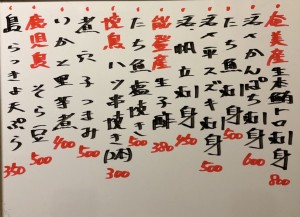 奄美産生本鮪トロ刺身 800
〆かんぱち刺身 600
たち魚刺身 500
〆平スズキ刺身 500
〆帆立刺身 450
能登産生子酢 380
たち魚塩焼き 500
焼鳥ハツ串焼き(2本) 300
煮穴子つまみ 500
いかと里芋煮 400
鹿児島そら豆 500
島らっきょ天ぷら 350